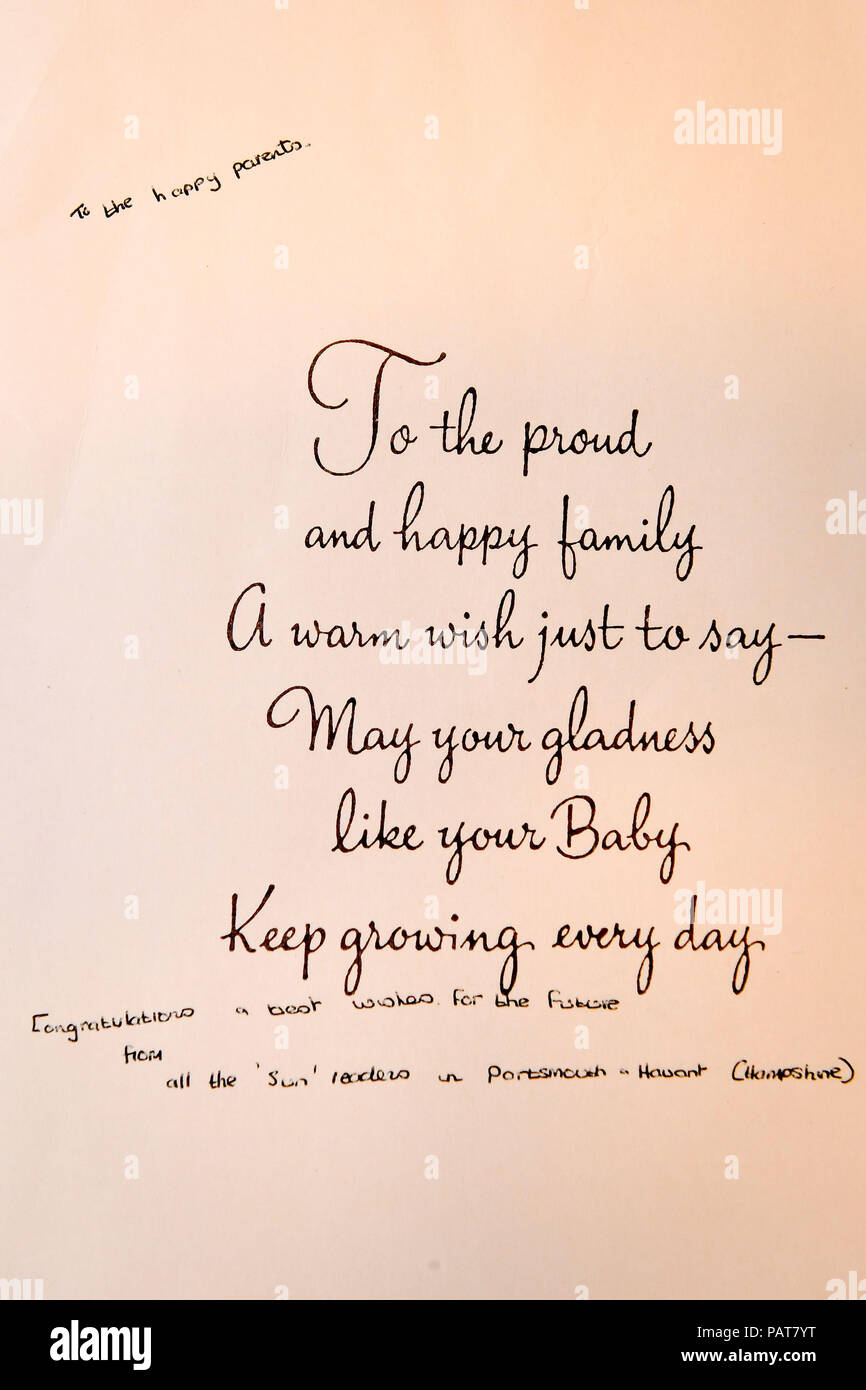 To the happy parents.
To the proud
and happy family
A warm wish just to say—
May your gladness
like your Baby
Keep growing every day
Congratulations a best wishes for the future
from
all the 'Sun' readers in Portsmouth a Havant (Hampshire)
alamy
Image ID: PAT7YT
www.alamy.com